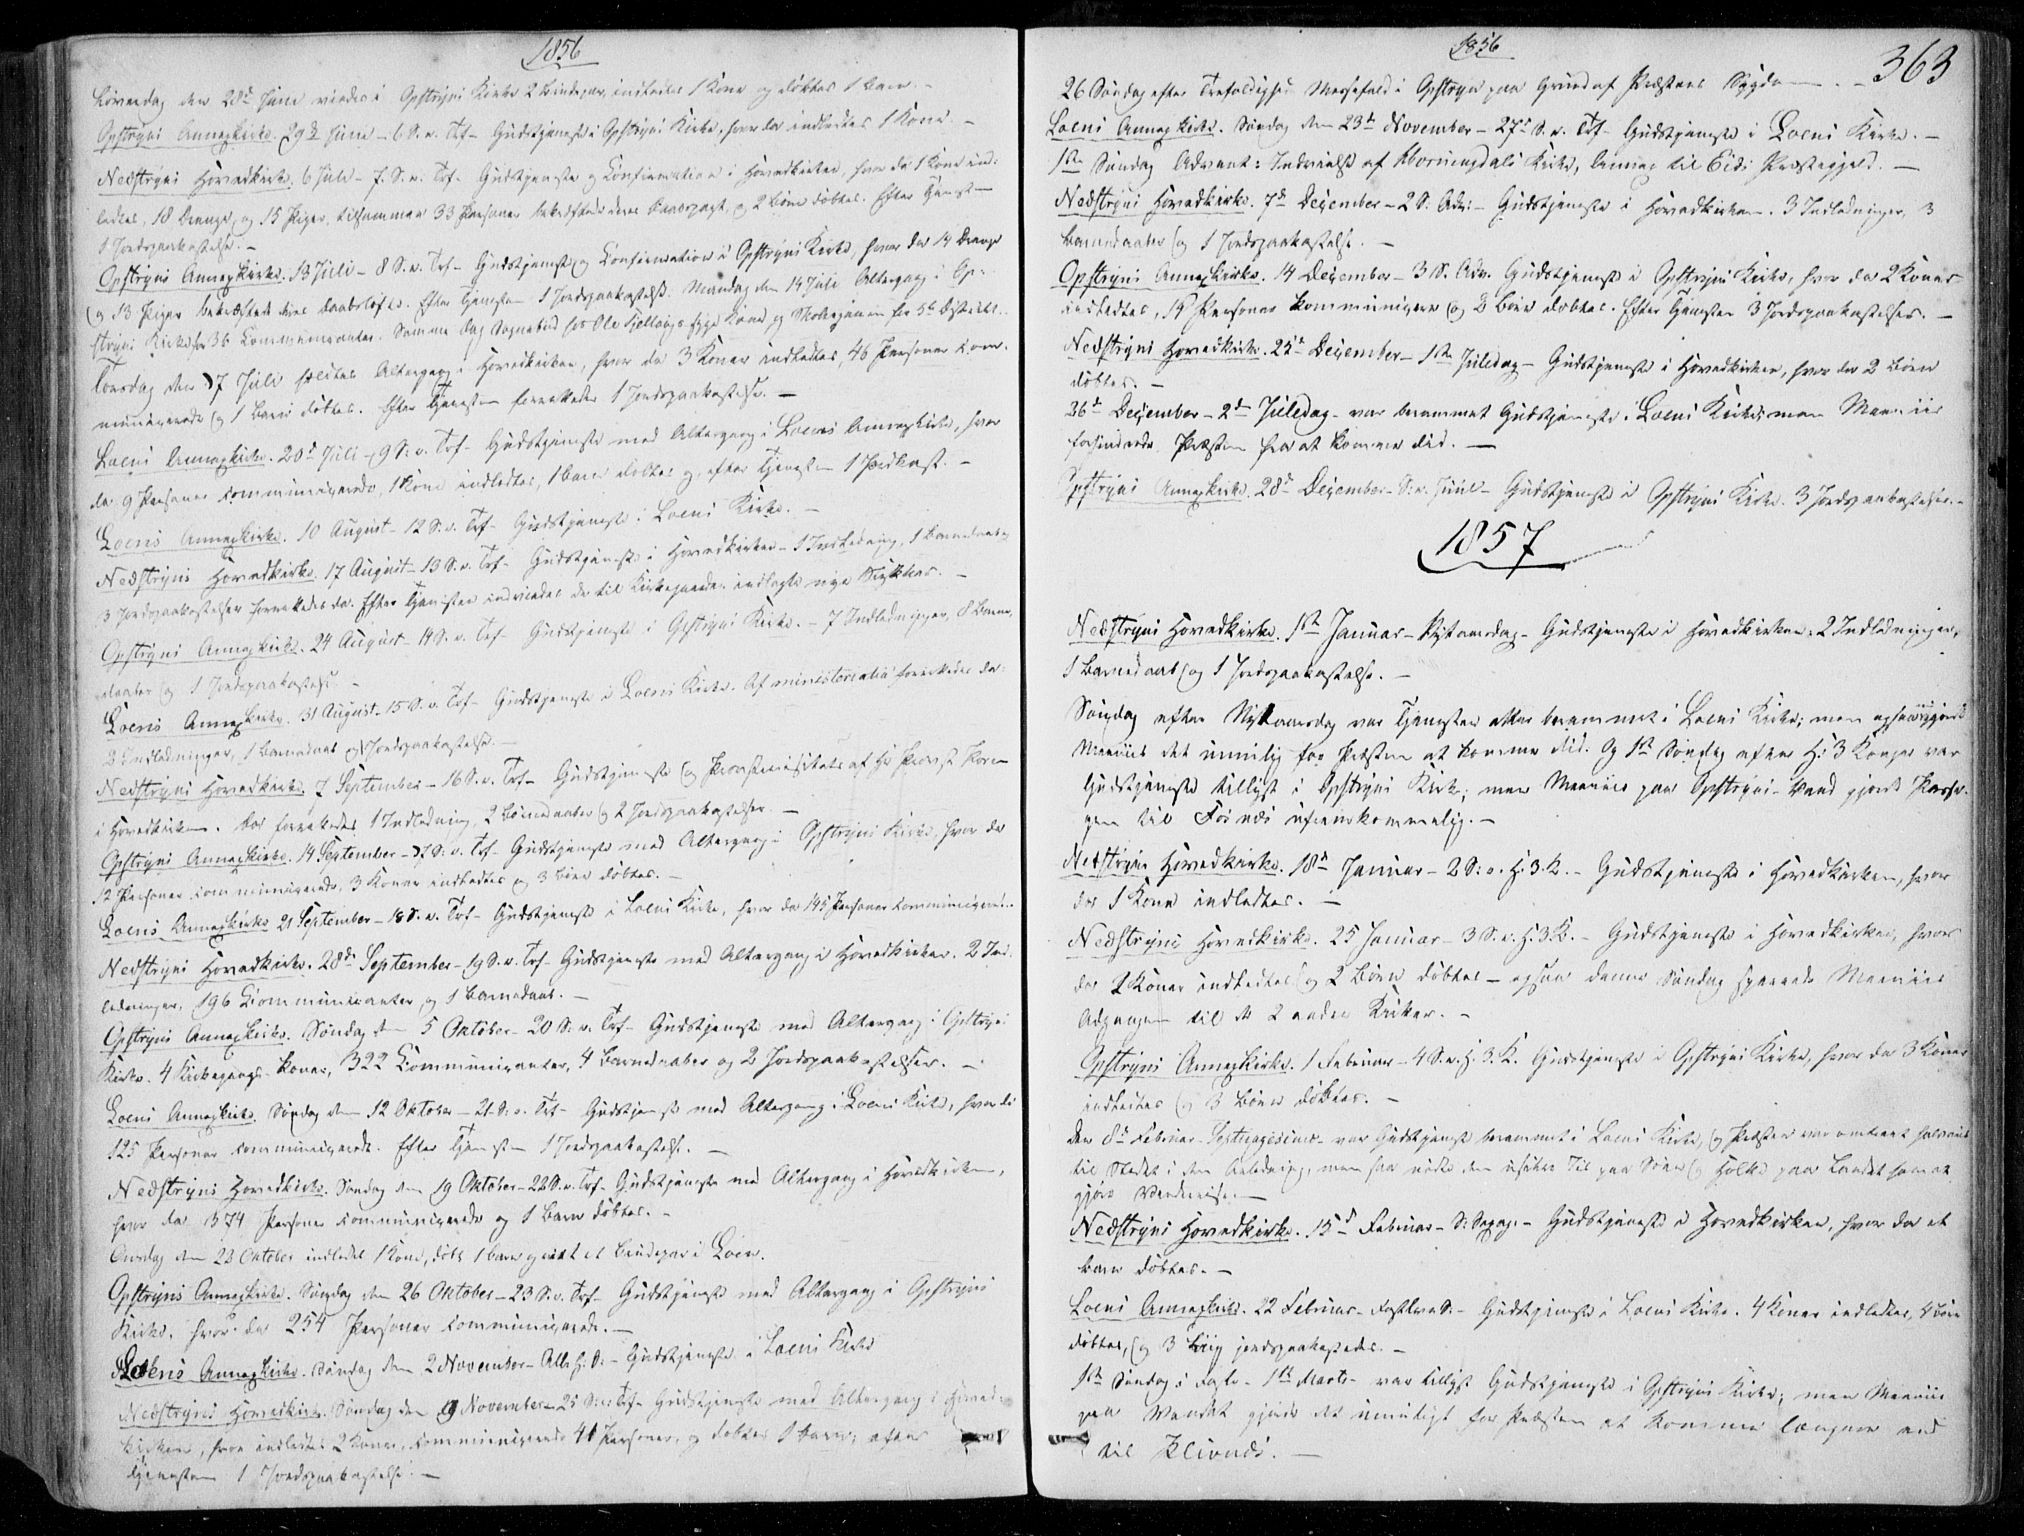 1856
Løverdag den 28de Juni viedes i Opstryns Kirke 2 Brudepar, indledtes 1 Kone og døbtes 1 Barn. –
Opstryns Annexkirke. 29de Juni – 6 S. e. Tref – Gudstjeneste i Opstryns Kirke, hvor der indledtes 1 Kone. –
Nedstryns Hovedkirke. 6 Juli – 7. S. e. Tref. Gudstjeneste og Confirmation i Hovedkirken, hvor da 1 Kone ind-
ledtes, 18 Drenge, og 15 Piger, tilsammen 33 Personer bekræftede deres Daabspagt, og 2 Børn døbtes. Efter Tjenesten
1 Jordspaakastelse. –
Opstryns Annexkirke. 13 Juli – 8 S. e. Tref – Gudstjeneste og Confirmation i Opstryns Kirke, hvor der 14 Drenge
og 13 Piger bekræftede deres Daabsløfte. Efter Tjenesten 1 Jordspaakastelse. Mandag den 14 Juli Altergang i Op-
stryns Kirke for 36 Communicanter. Samme Dag Sognebud hos Ole syge Kone, og for 5te District.
Torsdag den 17 Juli holdtes Altergang i Hovedkirken, hvor da 3 Koner indledtes, 46 Personer com-
municerede og 1 Barn døbtes. Efter Tjenesten forrettedes 1 Jordspaakastelse. –
Loens Annexkirke. 20de Juli – 9 S. e. Tref – Gudstjeneste med Altergang i Loens Annexkirke, hvor
da 9 Personer communicerede, 1 Kone indledtes, 1 Barn døbtes og efter Tjenesten 1 Jordkast. –
Loens Annexkirke. 10 August – 12 S. e. Tref – Gudstjeneste i Loens Kirke. –
Nedstryns Hovedkirke. 17 August – 13 S. e. Tref – Gudstjeneste i Hovedkirken – 1 Indledning, 1 Barnedaab og
3 Jordspaakastelser forrettedes da. Efter Tjenesten indviedes de til Kirkegaarden indlagte nye Stykker. –
Opstryns Annexkirke. 24 August – 14 S. e. Tref – Gudstjeneste i Opstryns Kirke. – 7 Indledninger, 8 Barne-
daaber og 1 Jordspaakastelse. –
Loens Annexkirke. 31 August – 15 S. e. Tref – Gudstjeneste i Loens Kirke. Af ministerialia forrettedes da:
2 Indledninger, 1 Barnedaab og Jordspaakastelse. –
Nedstryns Hovedkirke. 7 September – 16 S. e. Tref – Gudstjeneste og Provstevisitats af Hr Provst
i Hovedkirken. Der forrettedes 1 Indledning, 2 Børnedaaber og 2 Jordspaakastelser. –
Opstryns Annexkirke. 14 September – 17 S. e. Tref – Gudstjeneste med Altergang i Opstryns Kirke, hvor da
12 Personer communicerede, 3 Koner indledtes og 3 Børn døbtes. –
Loens Annexkirke 21 September – 18 S. e. Tref – Gudstjeneste i Loens Kirke, hvor da 145 Personer communicerede.
Nedstryns Hovedkirke. 28de September – 19 S. e. Tref – Gudstjeneste med Altergang i Hovedkirken. 2 Ind-
ledninger, 196 Communicanter, og 1 Barnedaab. –
Opstryns Annexkirke. Søndag den 5 Oktober – 20 S. e. Tref – Gudstjeneste med Altergang i Opstryns
Kirke. 4 Kirkegangs-Koner, 322 Communicanter, 4 Barnedaaber og 2 Jordspaakastelser. –
Loens Annexkirke. Søndag den 12 Oktober – 21 S. e. Tref – Gudstjeneste med Altergang i Loens Kirke, hvor da
125 Personer communicerede. Efter Tjenesten 1 Jordspaakastelse. –
Nedstryns Hovedkirke. Søndag den 19 Oktober – 22 S. e. Tref – Gudstjeneste med Altergang i Hovedkirken,
hvor da 374 Personer communicerede og 1 Barn døbtes. –
Onsdag den 22 Oktober indledtes 1 Kone, døbt 1 Barn og viet et Brudepar i Loen.
Opstryns Annexkirke. Søndag den 26 Oktober – 23 S. e. Tref – Gudstjeneste med Altergang i Opstryns
Kirke, hvor da 254 Personer communicerede. –
Loens Annexkirke. Søndag den 2 November – Alle H. D. – Gudstjeneste i Loens Kirke
Nedstryns Hovedkirke. Søndag den 9 November – 25 S. e. Tref – Gudstjeneste med Altergang i Hoved-
kirken, hvor indledtes 2 Koner, communicerede 41 Personer, og døbtes 1 Barn; efter
Tjenesten 1 Jordspaakastelse. –
1856
363
26 Søndag efter Trefoldighed Messefald i Opstryn paa Grund af Præstens Sygdom. –
Loens Annexkirke. Søndag den 23de November – 27de S. e. Tref – Gudstjeneste i Loens Kirke. –
1ste Søndag Advent: Indvielse af Hornindals Kirke, Annex til Eids Præstegjeld. –
Nedstryns Hovedkirke. 7de December – 2 S. Adv: – Gudstjeneste i Hovedkirken. 3 Indledninger, 3
Barnedaaber og 1 Jordspaakastelse. –
Opstryns Annexkirke. 14 December – 3 S. Adv. Gudstjeneste i Opstryns Kirke, hvor da 2 Koner
indledtes, 19 Personer kommunicerte og 2 Børn døbtes. Efter Tjenesten 3 Jordspaakastelser. –
Nedstryns Hovedkirke. 25de December – 1ste Juledag – Gudstjeneste i Hovedkirken, hvor da 2 Børn
døbtes. –
26de December – 2den Juledag – var berammet Gudstjeneste i Loens Kirke; men Meeniis
forhindrede Præsten fra at komme did. –
Opstryns Annexkirke. 28de December – S. e. Juul – Gudstjeneste i Opstryns Kirke. 3 Jordspaakastelser. –
1857
Nedstryns Hovedkirke. 1ste Januar – Nytaarsdag – Gudstjeneste i Hovedkirken; 2 Indledninger,
1 Barnedaab og 1 Jordspaakastelse. –
Søndag efter Nytaarsdag var Tjenesten atter berammet i Loens Kirke; men ogsaa gjorde
Meeniis det umulig for Præsten at komme did. Og 1ste Søndag efter H: 3 Konger var
Gudstjeneste tillyst i Opstryns Kirke; men Meeniis paa Opstryns-Vand gjorde Passa-
gen til Fosnæs ufremkommelig. –
Nedstryns Hovedkirke. 18de Januar – 2 S: e. H: 3. K. – Gudstjeneste i Hovedkirken, hvor
der 1 Kone indledtes. –
Nedstryns Hovedkirke. 25 Januar – 3 S. e. H. 3 K. – Gudstjeneste i Hovedkirken, hvor
der 2 Koner indledtes og 2 Børn døbtes – ogsaa denne Søndag spærrede Meeniis
Adgangen til de 2 andre Kirker. –
Opstryns Annexkirke. 1 Februar – 4 S. e. H. 3. K. Gudstjeneste i Opstryns Kirke, hvor da 3 Koner
indledtes og 3 Børn døbtes. –
Den 8de Februar – Septuagesima – var Gudstjeneste berammet i Loens Kirke, og Præsten var omtrent halvveis
til Stedet i den Anledning, men saa nødte den usikre Iis paa Søen og Holke paa Landet ham at
gjøre Vendereise. –
Nedstryns Hovedkirke. 15de Februar – S: Sexag: – Gudstjeneste i Hovedkirken, hvor da et
Barn døbtes. –
Loens Annexkirke. 22 Februar – Fastelavns S. – Gudstjeneste i Loens Kirke. 4 Koner indledtes, 4 Børn
døbtes, og 3 Liig jordspaakastedes. –
1ste Søndag i Faste – 1ste Marts – var tillyst Gudstjeneste i Opstryns Kirke; men Meeniis
paa Vandet gjorde det umuligt for Præsten at komme længere end
til Flivnæs. –